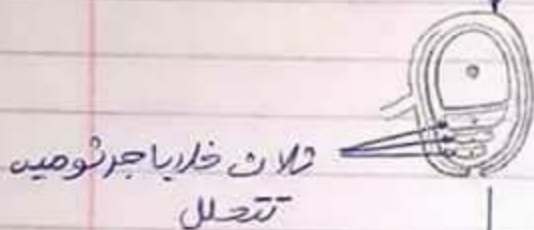 ثلاث خلايا جرثوميه
تتحلل